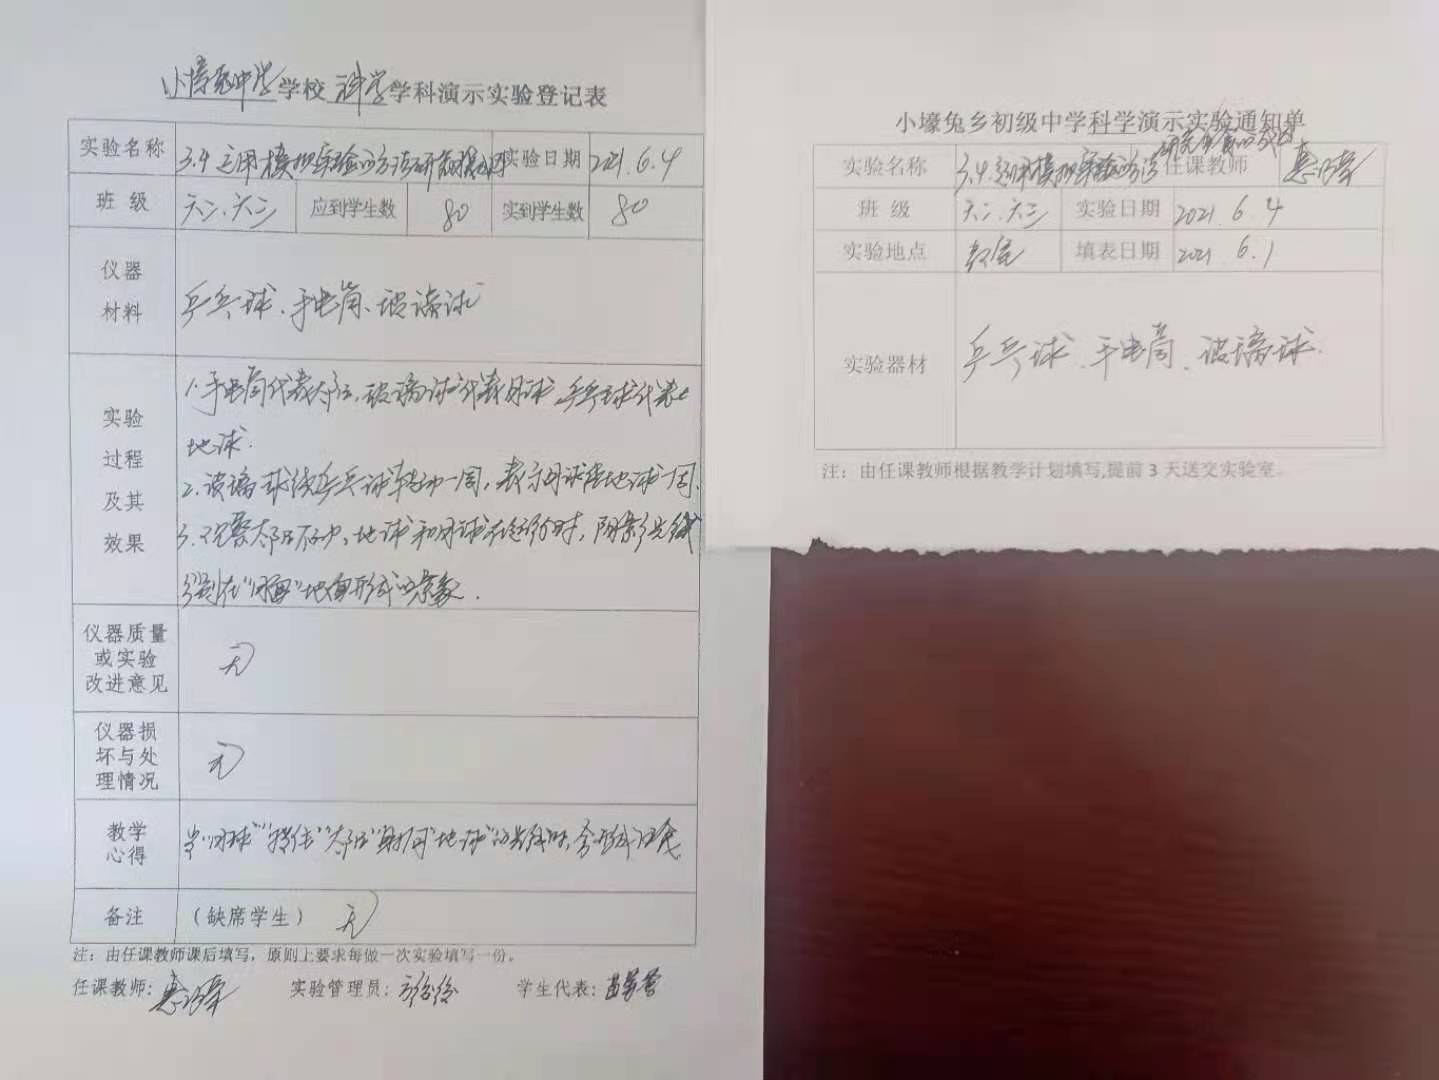 小壕兔中学学校科学学科演示实验登记表
实验名称 3.4 运用模拟实验的方法研 实验日期 2021.6.4
班 级 六二、六三 应到学生数 80 实到学生数 80
仪器
材料
乒乓球、手电筒、玻璃球
实验
过程
及其
效果
1.手电筒代表太阳,玻璃球代表月球,乒乓球代表
地球.
2.玻璃球绕乒乓球转动一周,表示月球绕地球一周.
3.观察太阳不动,地球和月球在运行时,阴影
在"月面"地面形成的景象.
仪器质量
或实验
改进意见
无
仪器损
坏与处
理情况
无
教学
心得
当"月球""挡住"太阳"射向"地球"的光线时,会形成日食
备注 (缺席学生) 无
注:由任课教师课后填写,原则上要求每做一次实验填写一份。
任课教师: 实验管理员: 学生代表:
小壕兔乡初级中学科学演示实验通知单
实验名称 3.4.运用模拟实验的方法研究 任课教师
班 级 六二、六三 实验日期 2021.6.4
实验地点 教室 填表日期 2021 6.1
实验器材 乒乓球、手电筒、玻璃球.
注:由任课教师根据教学计划填写,提前 3 天送交实验室。